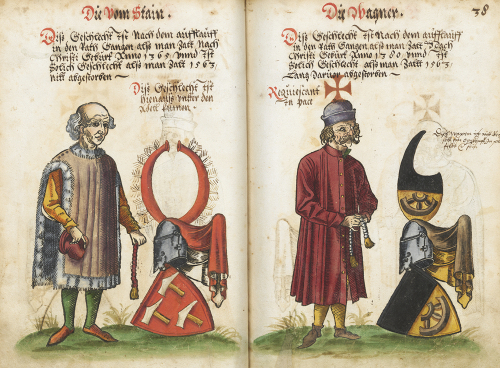 Die vom Stain.
Diß Geschlecht Ist Nach dem aufflauff
in den Rath Gangen alß man Zalt Nach
Christi Geburt Anno 1369 vnnd Ist
Solich Geschlecht alß man Zalt 1563
nitt abgestorben
Diß Geschlecht ist
hienauß vnter den
Adell
Die Wagner.
38
Diß Geschlecht Ist Nach dem aufflauff
in den Rath Gangen alß man Zalt Nach
Christi Geburt Anno 1380 vnnd Ist
Solich Geschlecht alß man Zalt 1563
Lang daruor abgestorben
Requiescant
In Pace